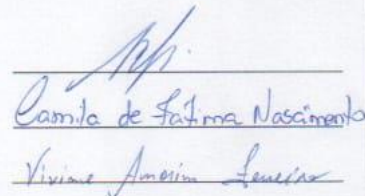 Camila de Fátima Nascimento
Viviane Amorim Ferreira